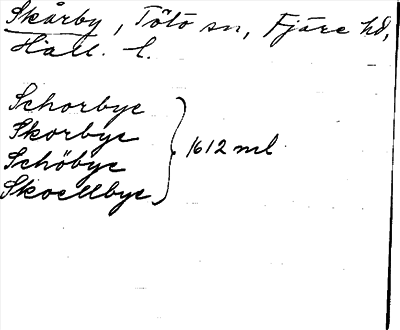 Skårby, Tölö sn, Fjäre hd,
Hall. l.
Schorbye
Skorbye
Schöbye
Skoellbye
} 1612 ml